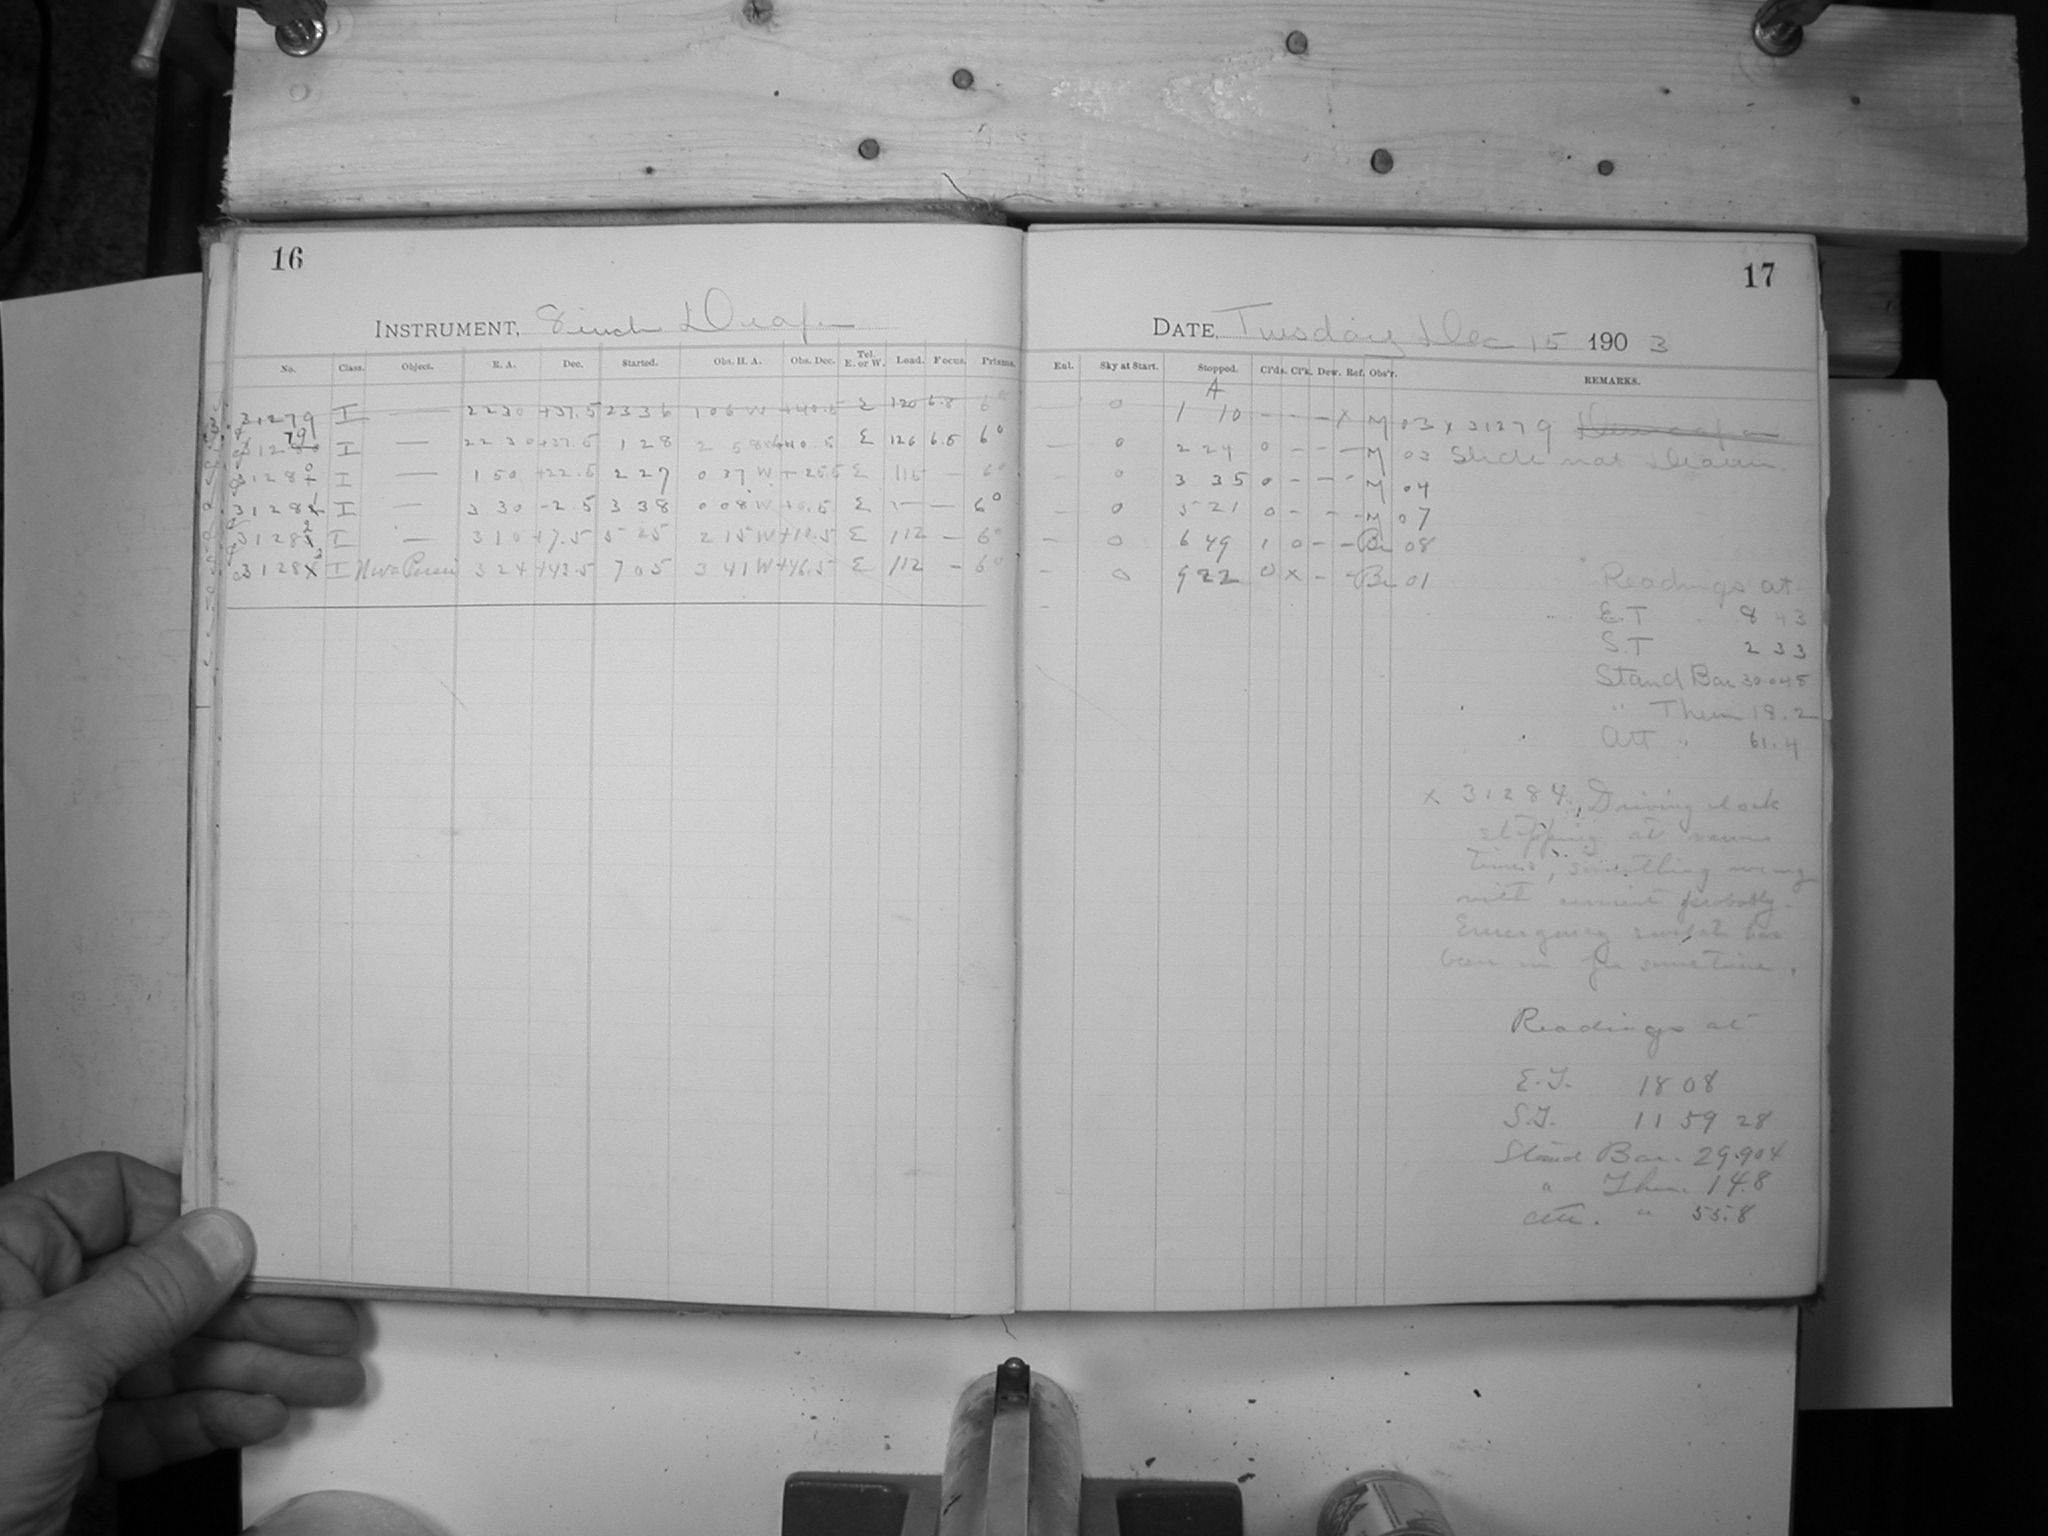 16
INSTRUMENT, 8 inch Draper
No. Class. Object. R. A. Dec. Started. Obs. H. A. Obs. Dec. Tel. E. or W. Load. Focus. Prisms.
31279 I — 22 30 +37.5 23 36 1 06 W +40.5 E 120 6.8 6°
I — 22 30 +37.5 1 28 2 58 W +40.5 E 126 6.5 6°
I — 1 50 +22.5 2 27 0 37 W +25.5 E 115 — 6°
I — 3 30 -2.5 3 38 0 08 W E — 6°
I — 3 10 +7.5 5 25 2 15 W +10.5 E 112 — 6°
I Nova Persei 3 24 +43.5 7 05 3 41 W +46.5 E 112 — 6°
17
DATE, Tuesday Dec 15 1903
Enl. Sky at Start. Stopped. Cl'ds. Cl'k. Dew. Ref. Obs'r. REMARKS.
A
0 1 10 - - - X M 03 x 31279
— 0 2 24 0 - - - M 03 Slide not drawn.
— 0 3 35 0 - - - M 04
— 0 5 21 0 - - - M 07
— 0 6 49 1 0 - - Br 08
— 0 9 22 0 x - - Br 01
Readings at
E.T 8 43
S.T 2 33
Stand Bar 30.045
" Therm 18.2
Att " 61.4
x 31284, Driving clock
stopping at various
times, something wrong
with current probably.
Emergency switch has
been in for sometime.
Readings at
E.T. 18 08
S.T. 11 59 28
Stand Bar. 29.904
" Ther. 14.8
att. " 55.8